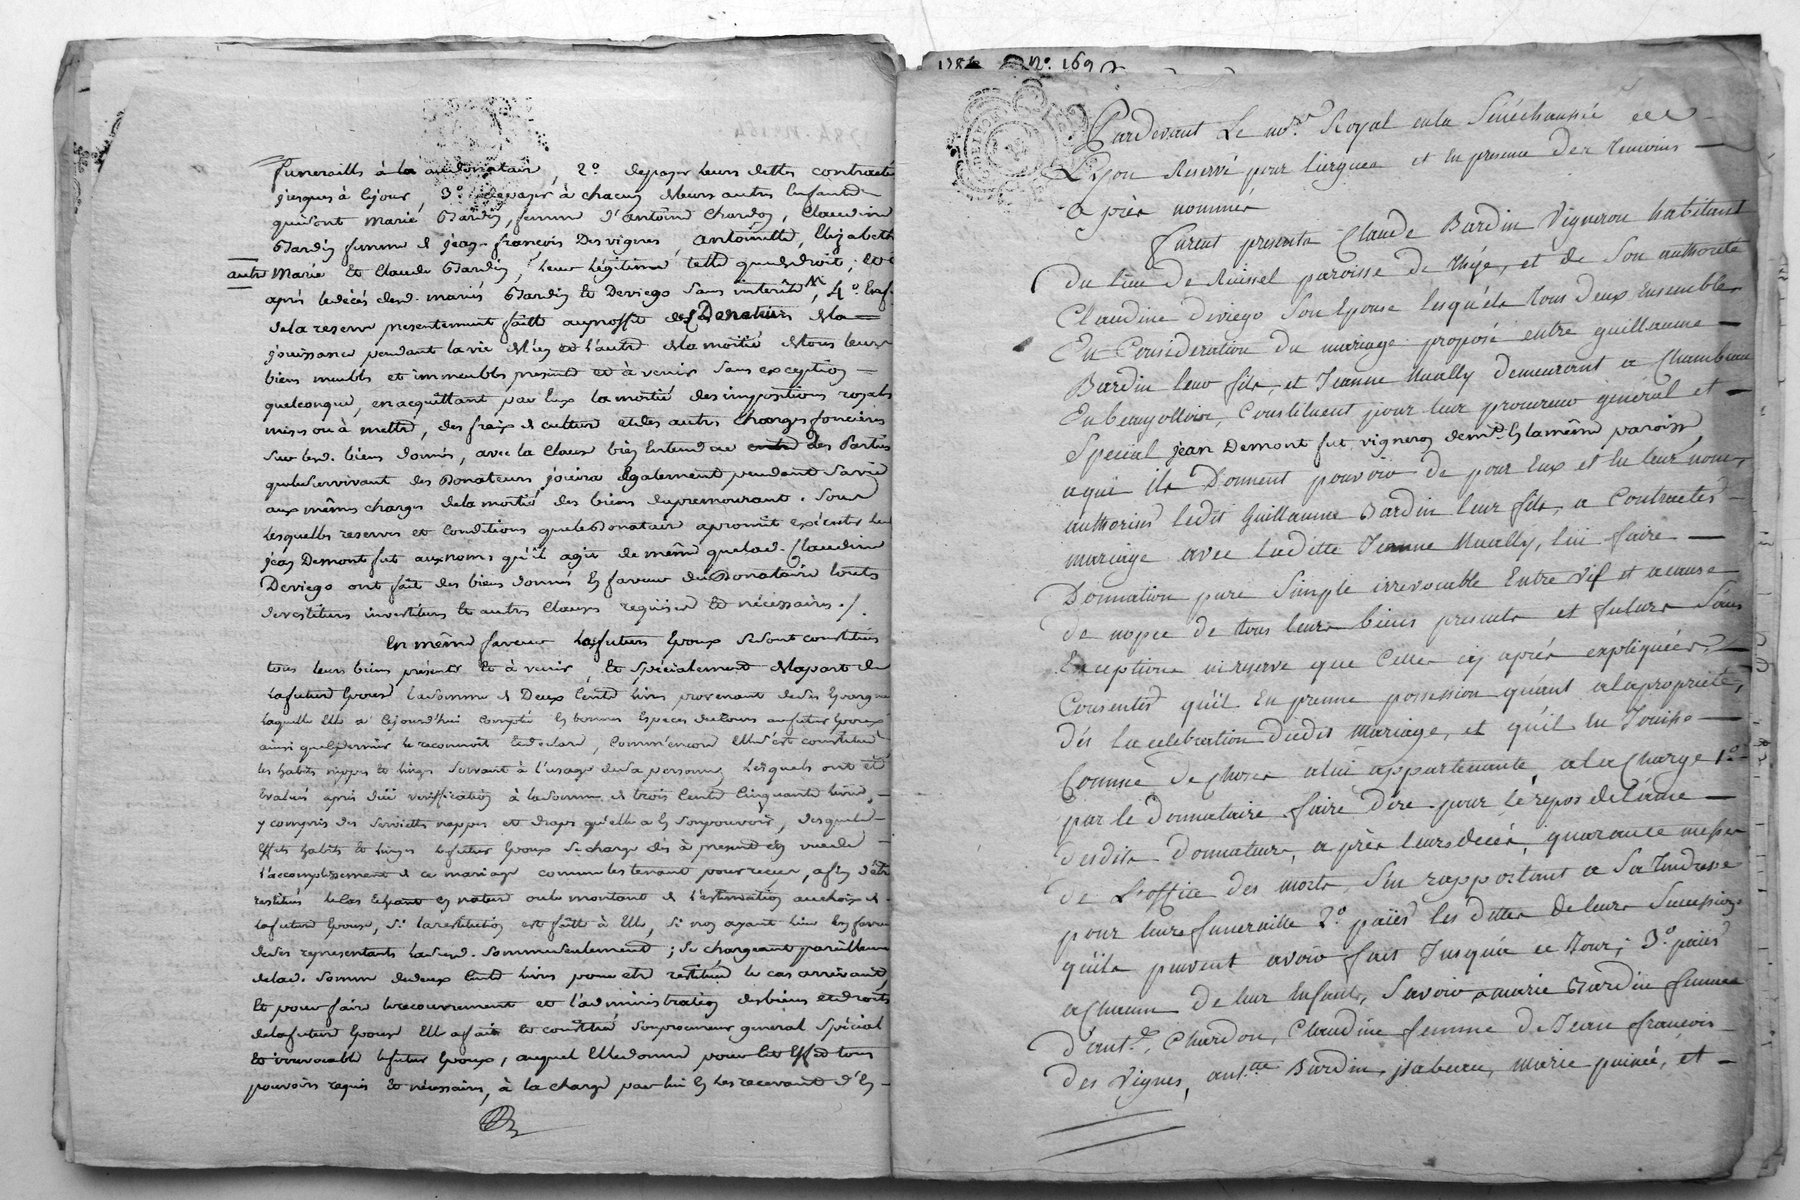 funerailles à la du donataire, 2° de payer leurs dettes contractés
jusques à ce jour, 3° de payer à chacun de leurs autres Enfants
qui sont Marie Bardin, femme d'antoine Chardon, Claudine
Bardin femme de jean-françois Desvignes, antoinette, Elizabeth
autre Marie et Claude Bardin, leur légitime telle que de droit, et ce
après le décès desd. mariés Bardin et Deviego sans interêts, 4° Enf-
de la reserve presentement faitte au proffit des Donateurs de la
jouissance pendant la vie de l'un et l'autre de la moitié de tous leurs
biens meubles et immeubles presents et à venir sans exception
quelconque, en acquittant par Eux la moitié des impositions royales
mises ou à mettre, des fraix de culture et des autres Charges foncières
sur lesd. biens donnés, avec la Clause bien Entendue entre les Parties
que le survivant des Donateurs jouira également pendant sa vie
aux mêmes charges de la moitié des biens du premourant. Sous
lesquelles reserves et conditions que le Donataire a promit exécuter led.
jean Demontfut aux noms qu'il agit de même que lad. Claudine
Deviego ont fait des biens donnés En faveur du Donataire touts
devestitures investitures et autres Clauses requises et nécessaires ./.
En même faveur les futurs Epoux se sont constitués
tous leurs biens présents et à venir, et spécialement de la part de
la future Epouse la somme de Deux Cents livres provenant de ses Epargnes
laquelle Elle a ce jourd'hui compté En bonnes Especes du cours au futur Epoux
ainsi que ce dernier le reconnoit et declare, Comm'encore Elle s'est constitué
les habits nippes et linges servant à l'usage de sa personne, lesquels ont été
Evalués après due verification à la somme de trois Cents Cinquante livres,
y compris des serviettes nappes et draps qu'elle a En son pouvoir, desquels
Effets habits et linges le futur Epoux se charge dès à present En vue de
l'accomplissement de ce mariage comme les tenant pour recus, afin d'être
restitués le Cas Echéant en nature ou le montant de l'estimation au choix de
la future Epouse, si la restitution est faitte à Elle, si non ayant lieu En faveur
de ses representants lad. somme seulement; se chargeant pareillement
de lad. somme de deux Cents livres pour etre restitué le cas arrivant,
Et pour faire le recouvrement et l'administration des biens et droits
de la future Epouse Elle a fait et constitué son procureur general spécial
et irrevocable le futur Epoux, auquel Elle donne pour cet Effet tous
pouvoirs requis et nécessaires, à la charge par lui En les recevant d'En
1784 N° 169
Pardevant Le no.re Royal en la Sénéchaussée de
Lyon Reservé pour Liergues et En presence des temoins
après nommés
furent presents Claude Bardin Vigneron habitant
du lieu de Ruissel paroisse de Thyé, et de Son authorité
Claudine Deviego Son Epouse lesquels tous deux Ensembles
En Consideration du mariage proposé entre guillaume
Bardin leur fils, et Jeanne Mually demeurant a Chambeau
En beaujollois, Constituent pour leur procureur général et
Special jean Demontfut vigneron dem.t En la même paroisse,
a qui ils Donnent pouvoir de pour Eux et En leur nom,
authoriser ledit Guillaume Bardin leur fils, a Contracter
mariage avec laditte Jeanne Mually, lui faire
Donnation pure Simple irrevocable Entre vif et a cause
de nopce de tous leurs biens presents et futurs Sans
Exceptions ni reserve que Celles cy après expliquées,
Consenter qu'il En prenne possession quant a la propriété,
dès la celebration dudit Mariage, et qu'il En Jouisse
Comme de choses a lui appartenante, a la Charge 1°
par le Donnataire faire dire pour le repos de l'ame
desdits Donnateurs, après leurs decès, quarante messes
de L'office des morts, s'en rapportant a Sa tendresse
pour leurs funeraille 2° païer les dettes de leurs Succession
qu'ils peuvent avoir fait Jusqu'a ce Jour; 3° païer
a chacun de leur Enfants, Savoir a marie Bardin femme
d'ant.e Chardon, Claudine femme de Jean françois
des Vignes, ant.tte Bardin isabeau, Marie puinée, et